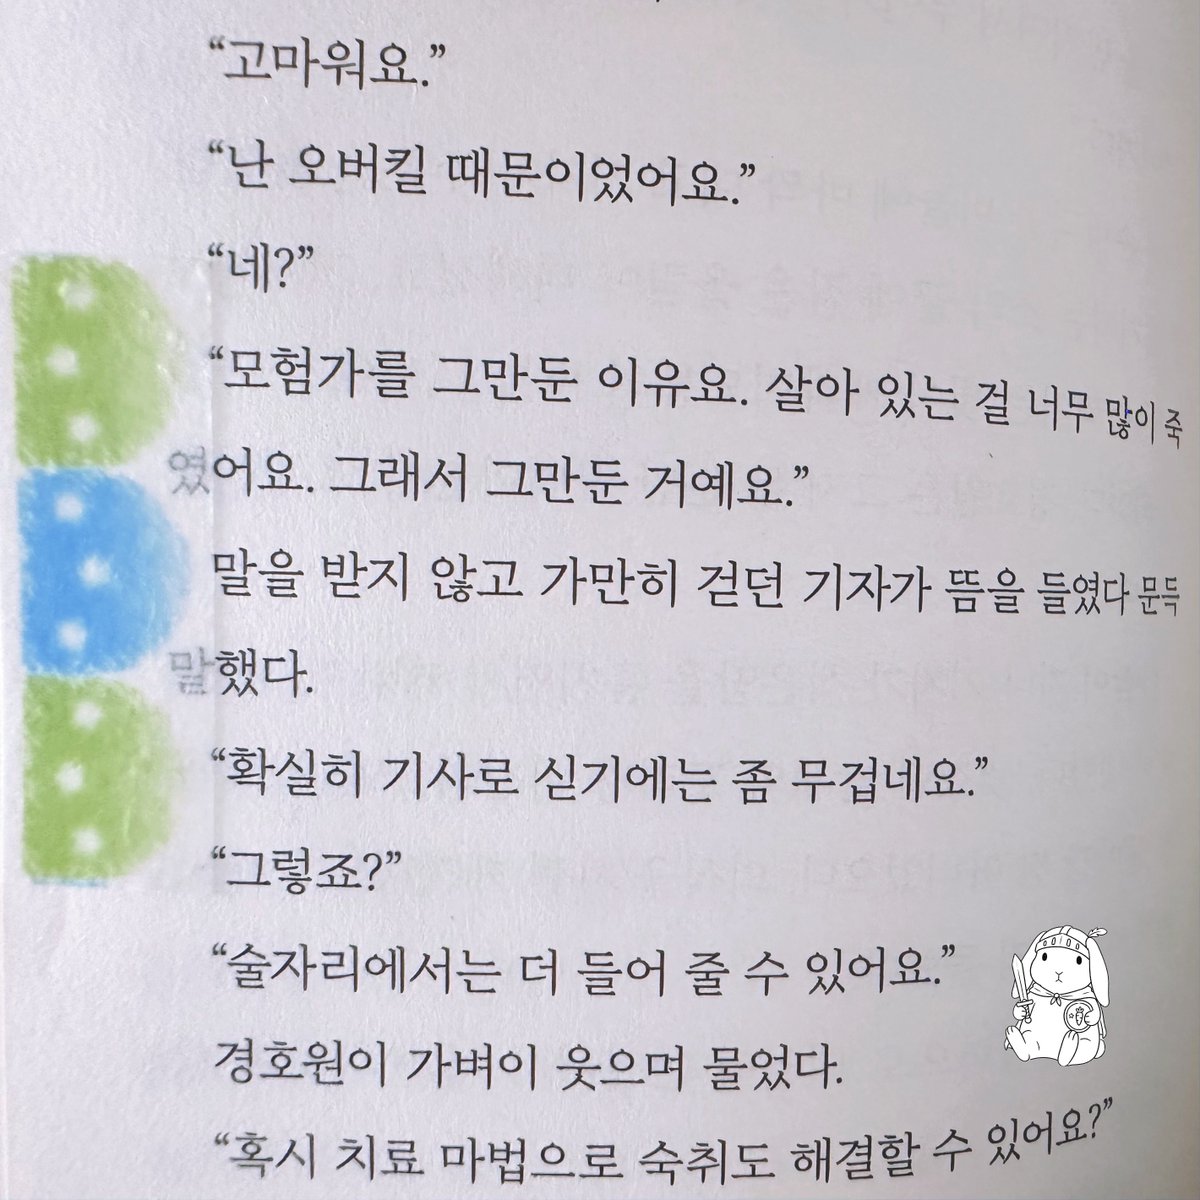 “고마워요.”
“난 오버킬 때문이었어요.”
“네?”
“모험가를 그만둔 이유요. 살아 있는 걸 너무 많이 죽
였어요. 그래서 그만둔 거예요.”
말을 받지 않고 가만히 걷던 기자가 뜸을 들였다 문득
말했다.
“확실히 기사로 싣기에는 좀 무겁네요.”
“그렇죠?”
“술자리에서는 더 들어 줄 수 있어요.”
경호원이 가벼이 웃으며 물었다.
“혹시 치료 마법으로 숙취도 해결할 수 있어요?”